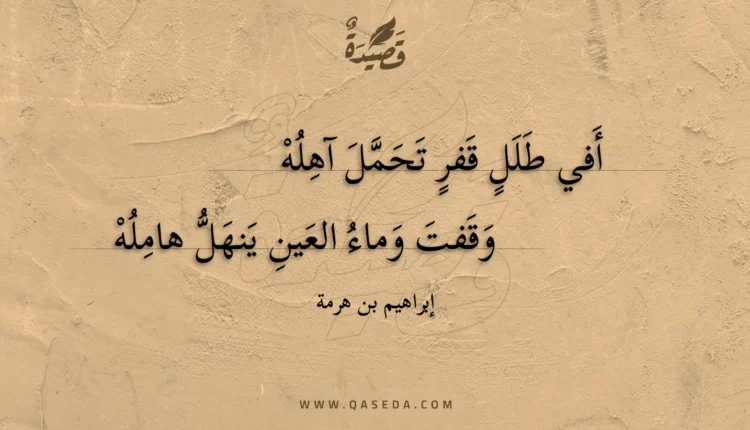 قَصِيدَةٌ
أَفي طَلَلٍ قَفرٍ تَحَمَّلَ آهِلُهْ
وَقَفتَ وَماءُ العَينِ يَنهَلُّ هامِلُهْ
إبراهيم بن هرمة
WWW.QASEDA.COM